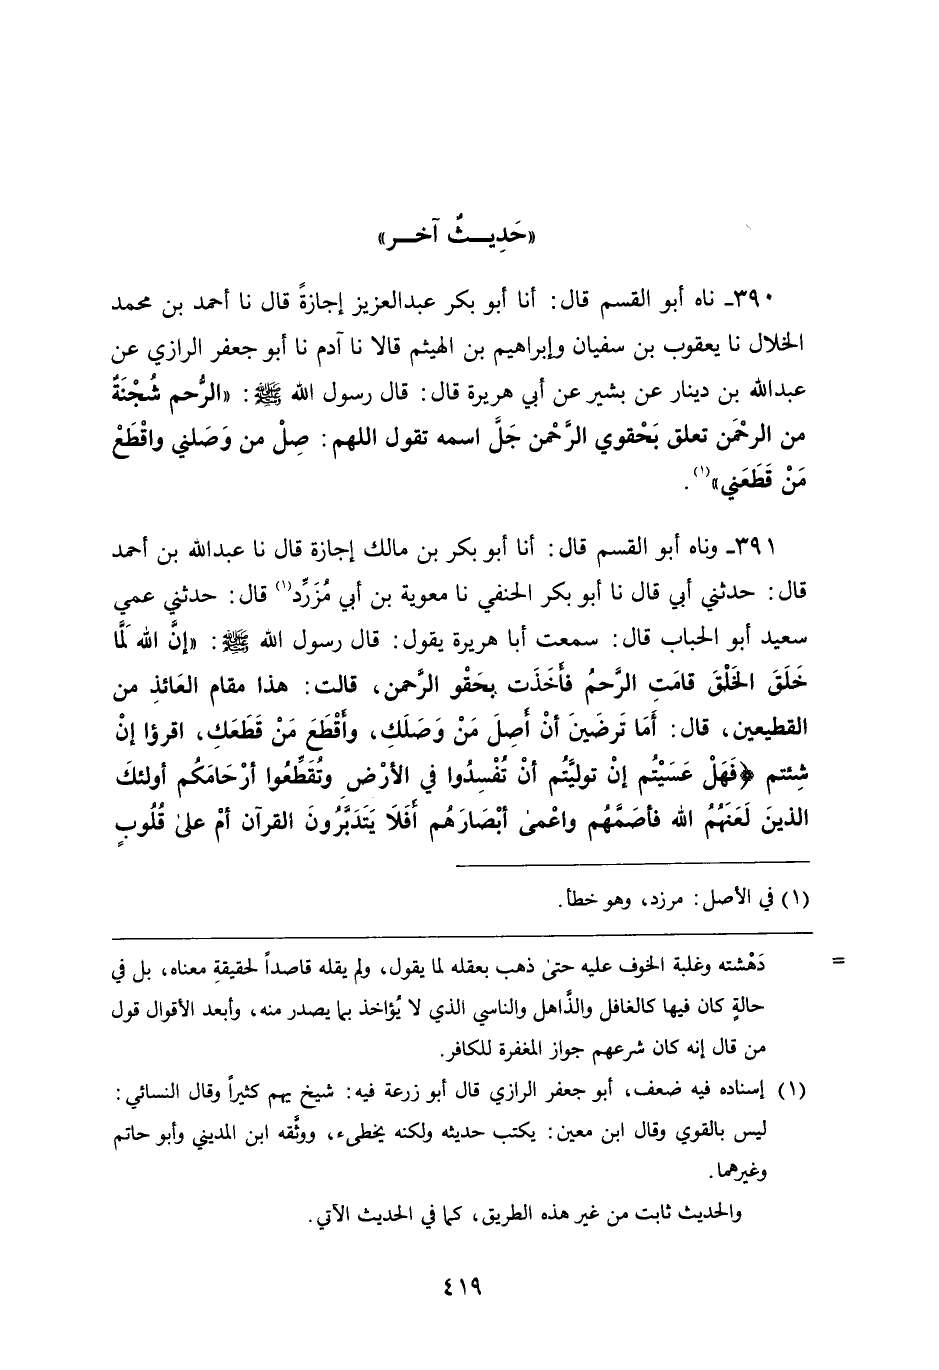 «حَدِيــثٌ آخــر»
٣٩٠ـ ناه أبو القسم قال: أنا أبو بكر عبدالعزيز إجازةً قال نا أحمد بن محمد
الخلال نا يعقوب بن سفيان وإبراهيم بن الهيثم قالا نا آدم نا أبو جعفر الرازي عن
عبدالله بن دينار عن بشير عن أبي هريرة قال: قال رسول الله ﷺ: «الرُّحم شُجْنَةٌ
من الرحْمَن تعلق بَحْقوي الرَّحْمن جَلَّ اسمه تقول اللهم: صِلْ من وَصَلني واقْطَعْ
مَنْ قَطَعَني»(١).
٣٩١ـ وناه أبو القسم قال: أنا أبو بكر بن مالك إجازة قال نا عبدالله بن أحمد
قال: حدثني أبي قال نا أبو بكر الحنفي نا معوية بن أبي مُزَرِّد(١) قال: حدثني عمي
سعيد أبو الحباب قال: سمعت أبا هريرة يقول: قال رسول الله ﷺ: «إنَّ الله لَمَّا
خَلَقَ الخَلْقَ قامَتِ الرَّحمُ فأَخَذَت بِحَقْو الرَّحمن، قالت: هذا مقام العَائذِ من
القطيعين، قال: أمَا تَرضَينَ أنْ أَصِلَ مَنْ وَصَلَكِ، وأَقْطَعَ مَنْ قَطَعَكِ، اقرؤا إنْ
شِئتم ﴿فَهَلْ عَسَيْتُم إنْ توليَّتُم أنْ تُفْسِدُوا في الأرْضِ وتُقَطِّعُوا أرْحَامَكُم أولئكَ
الذينَ لَعَنَهُمُ الله فأصَمَّهُم واعْمىٰ أبْصَارَهُم أَفَلَا يَتَدَبَّرُونَ القرآن أمْ علىٰ قُلُوبٍ
(١) في الأصل: مرزد، وهو خطأ.
= دَهْشته وغلبة الخوف عليه حتىٰ ذهب بعقله لما يقول، ولم يقله قاصداً لحقيقةِ معناه، بل في
حالةٍ كان فيها كالغافل والذَّاهل والناسي الذي لا يُؤاخذ بما يصدر منه، وأبعد الأقوال قول
من قال إنه كان شرعهم جواز المغفرة للكافر.
(١) إسناده فيه ضعف، أبو جعفر الرازي قال أبو زرعة فيه: شيخ يهم كثيراً وقال النسائي:
ليس بالقوي وقال ابن معين: يكتب حديثه ولكنه يخطىء، ووثَّقه ابن المديني وأبو حاتم
وغيرهما.
والحديث ثابت من غير هذه الطريق، كما في الحديث الآتي.
٤١٩